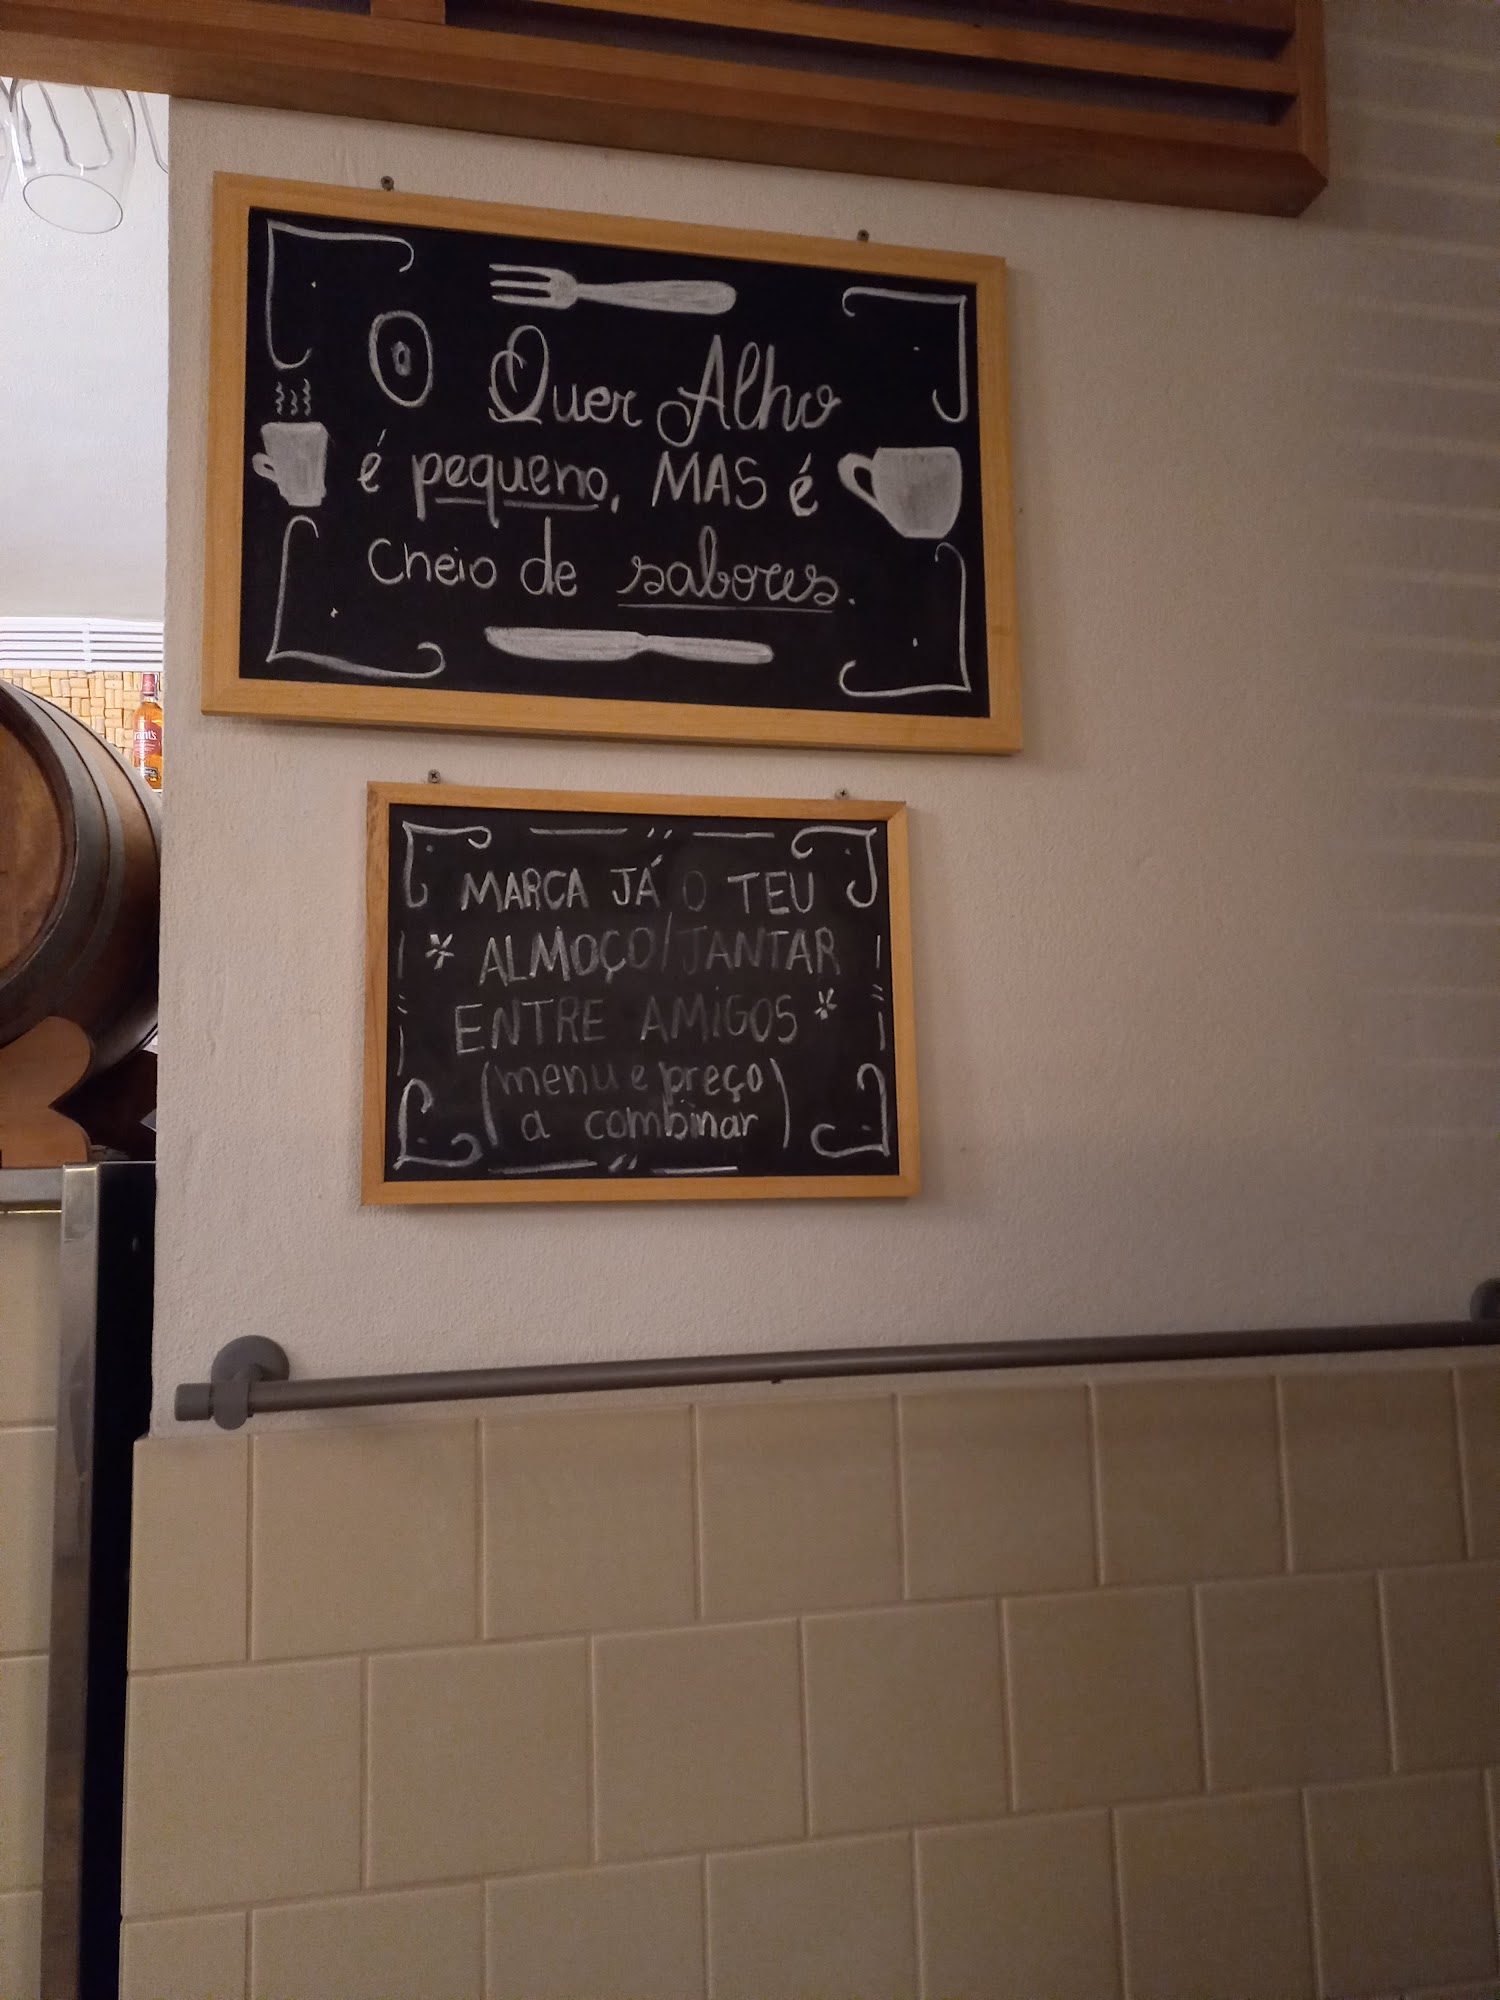 O Quer Alho
é pequeno, MAS é
cheio de sabores.
MARCA JÁ O TEU
* ALMOÇO/JANTAR
ENTRE AMIGOS *
(menu e preço
a combinar)
rant's